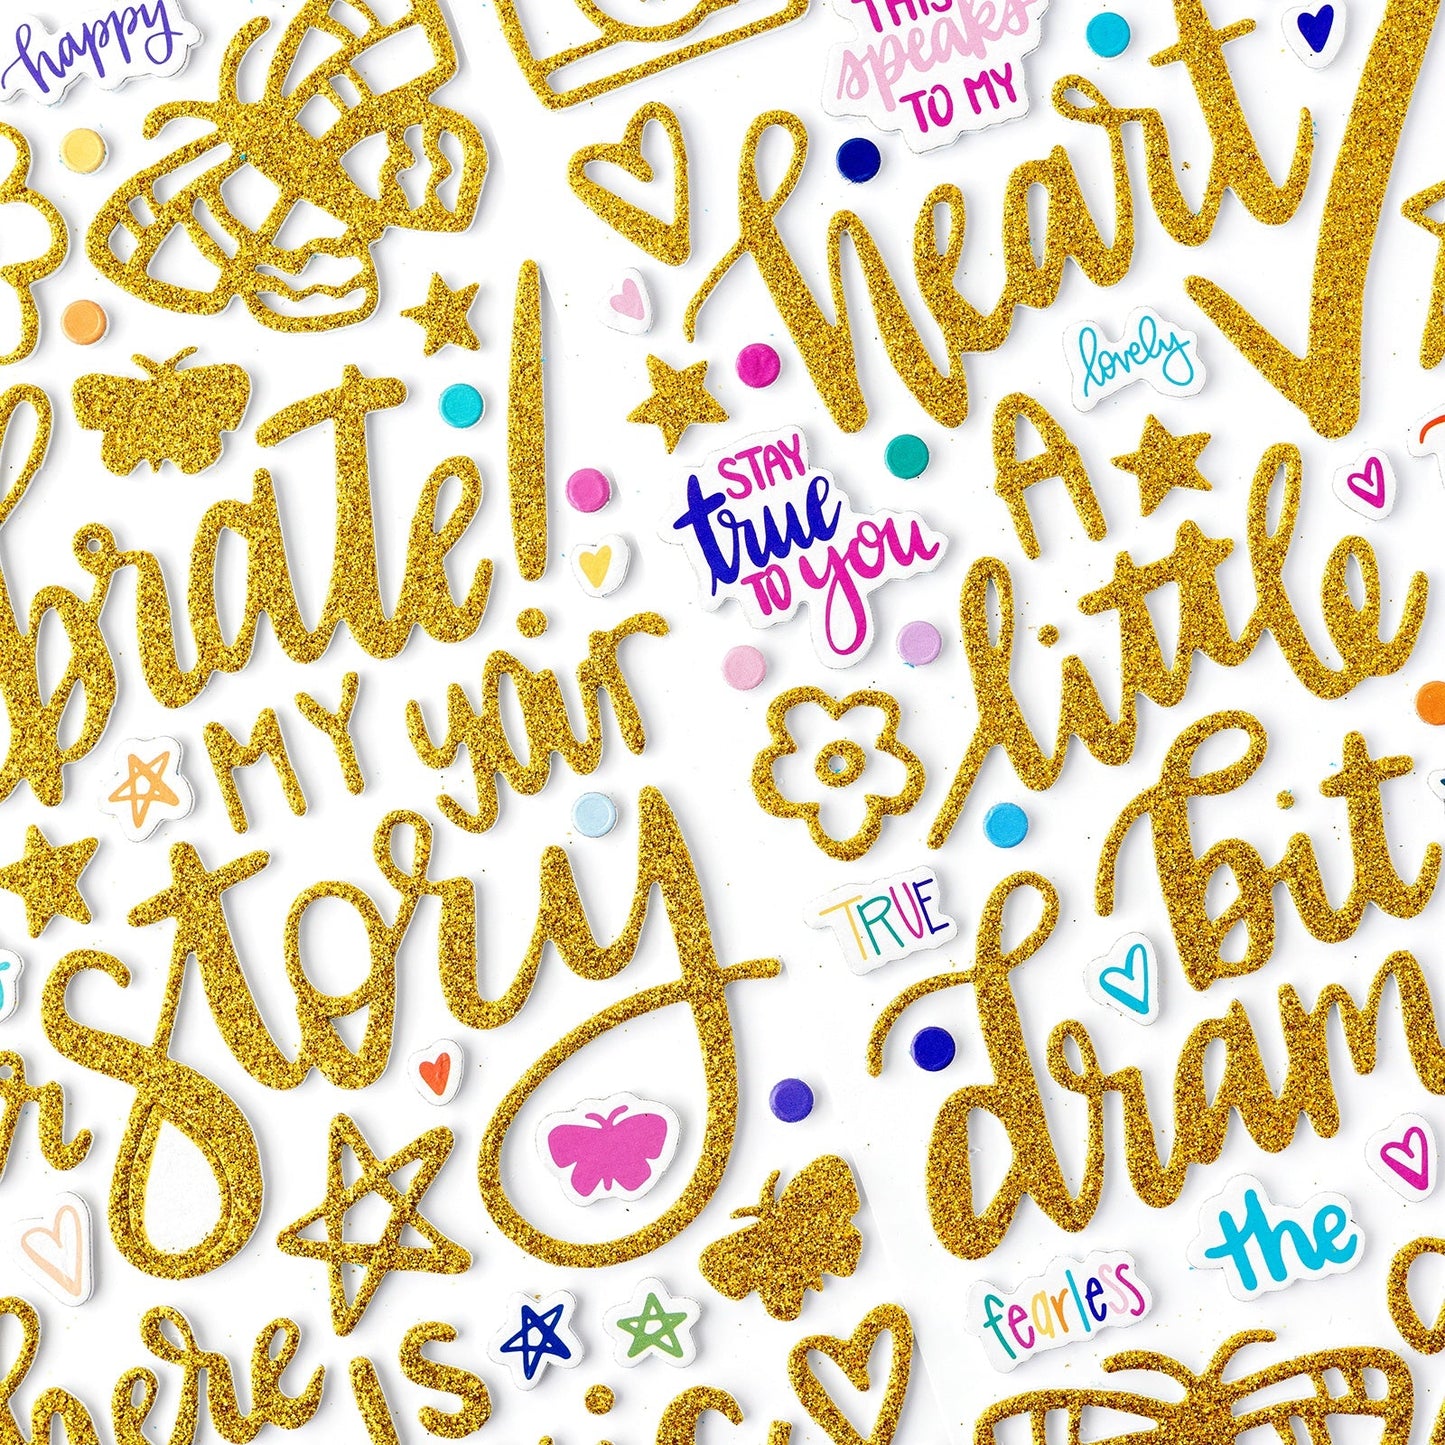 happy
THIS
speaks
TO MY
heart
lovely
brate!
STAY
true
TO you
A
little
bit
dram
MY
story
TRUE
the
fearless
here is